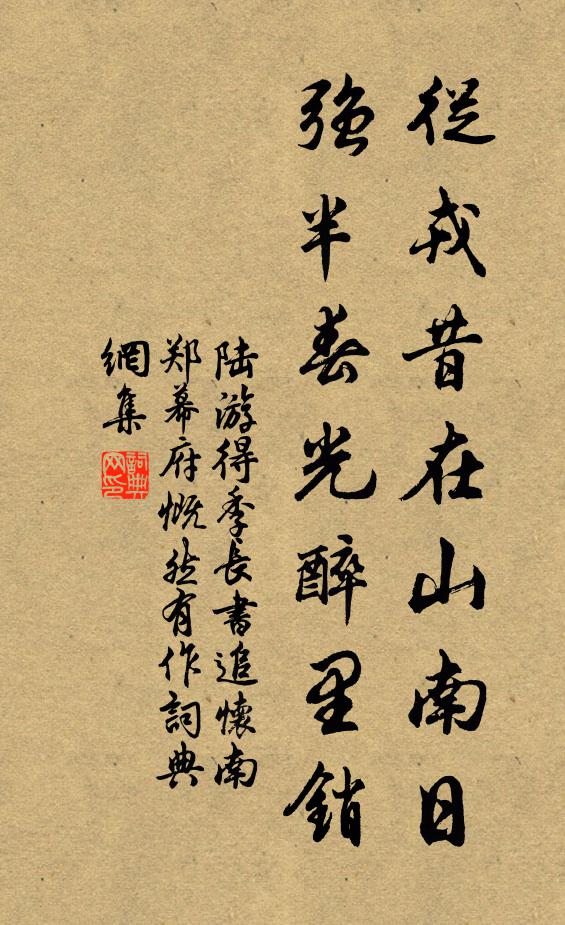 從戎昔在山南日
強半春光醉里銷
陆游得季長書追懷南
郑幕府慨然有作詞典
網集
詞典網印